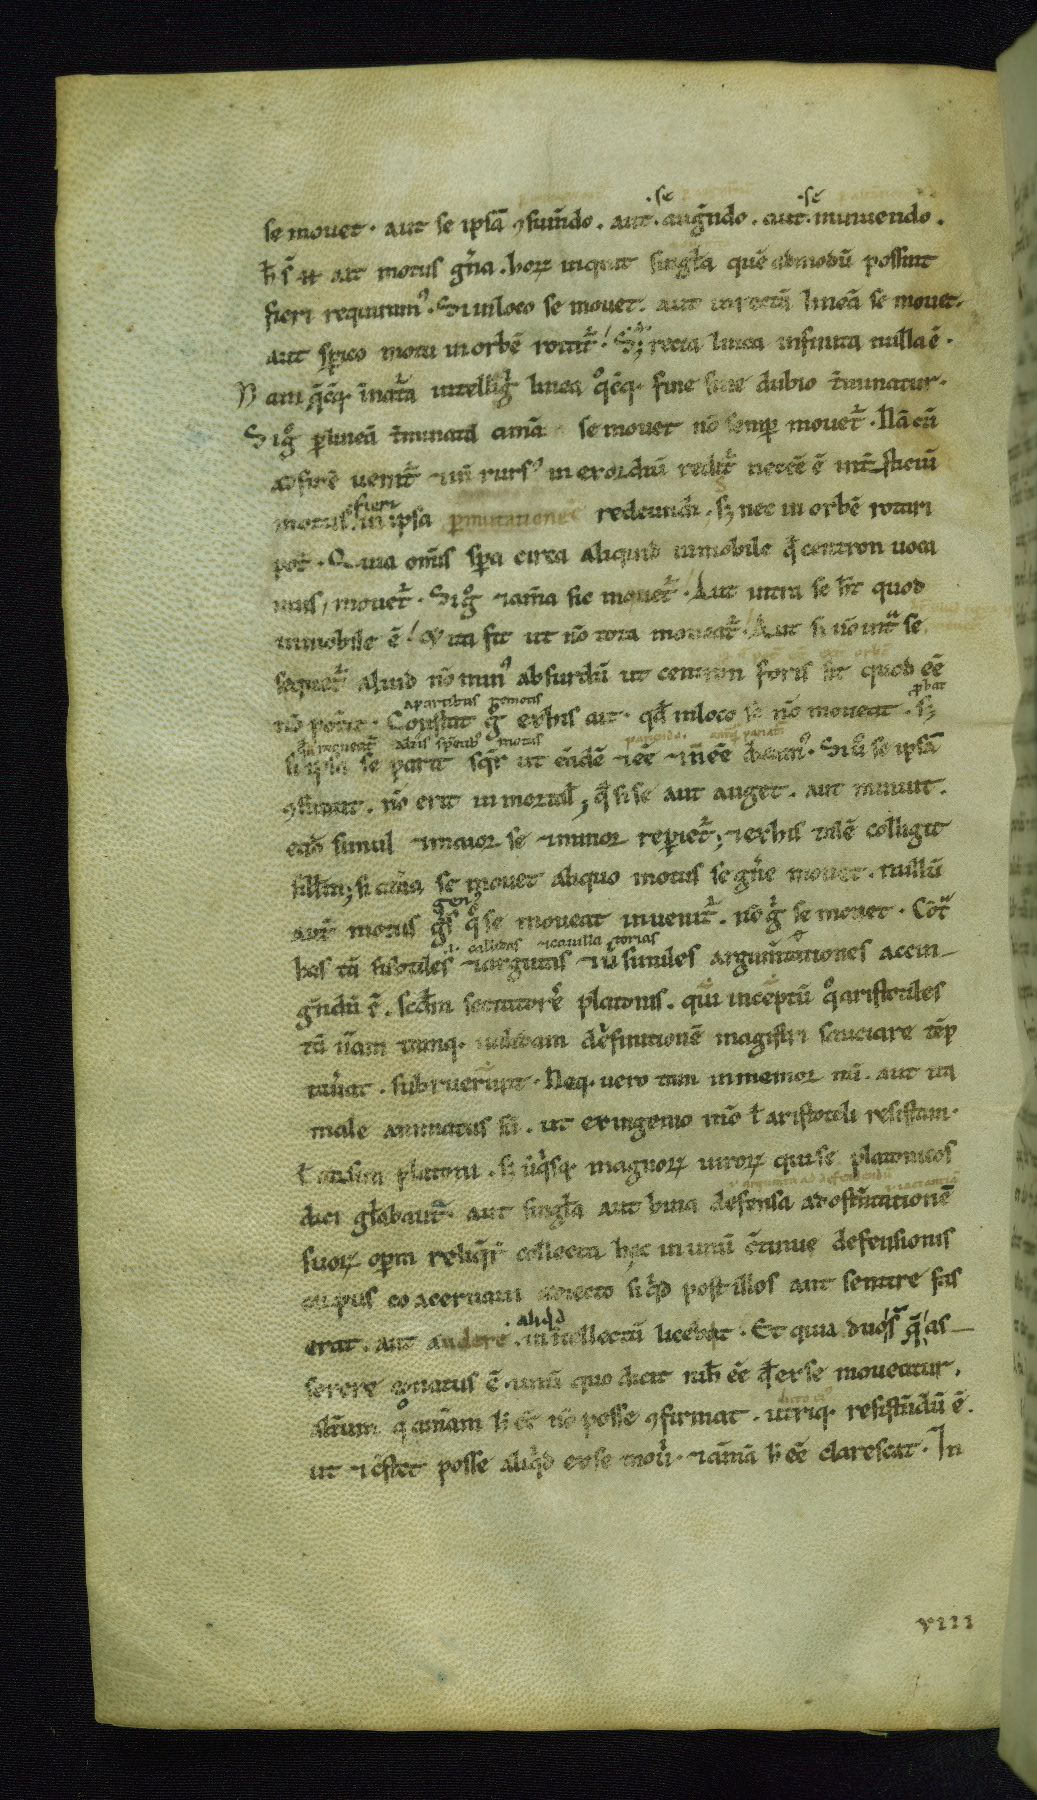 ·sē ·sē
se mouet · aut se ipsā ꝯsum̄do . aut · auḡndo . aut · minuendo .
h̄ s̄ ut ait motus gn̄a . hoꝝ inquit singl̄a quē admodū possint
fieri requiram᷒ . Si in loco se mouet . aut in rectā lineā se mouet .
aut sp̄ico motu in orbē rotat᷑ . Sꝫ recta linea infinita nulla ē .
Nam q̄cūq; in nat᷑a intelligat᷑ linea q͛cūq; fine sine dubio t̄minatur .
Si gͦ ꝑ lineā t̄minatā anīa se mouet nō semꝑ mouet᷑ . Nā cū
ad finē uenit᷑ ⁊ in̄ rurs᷒ in exordiū redit᷑ necēe ē int̄stitiū
fieri
motus in ipsa ꝑmutatione redeundi . sꝫ nec in orbē rotari
pot̄ . Quia om̄is sp̄a circa aliquid inmobile qd̄ centron uoca
mus , mouet᷑ . Si gͦ ⁊ anīa sic mouet᷑ . Aut intra se h̄t quod
inmobile ē . & ita fit ut nō tota moueat᷑ . Aut si nō int᷑ se
sequet᷑ aliud nō min᷒ absurdū ut centron foris sit quod eē
a partibus remotis ꝓbat
nō pot̄it . Constat g̊ ex his ait . qd̄ in loco se nō moueat . sꝫ
motus
si ipsa se parit seq̄r ut eādē ⁊ eē ⁊ n̄ eē dicam᷒ . Si u͛ se ipsā
ꝯsumit . nō erit inmortal̄ ; qd̄ si se aut auget . aut minuit .
eadē simul ⁊ maior se ⁊ minor reperiet᷑ ; ⁊ ex his talē colligit
sillm̄ ; si anīa se mouet aliquo motus se gn̄e mouet . nullū
gen᷒
aut̄ motus q͛ se moueat inuenit᷑ . nō g͛ se mouet . Cōt᷑
·i· callidas ⁊ cauillatorias
has tā subtiles ⁊ argutas ⁊ uī similes argum̄tationes accin-
ḡndū ē . scd̄m sectatorē platonis . qui inceptū q͛ aristotiles
tā uām tamq; ualidam definitionē magistri sauciare tēp
tauat . subruerunt . Neq; uero tam inmemor mī . aut ita
male animatus sū . ut ex ingenio mō l̄ aristotili resistam .
l̄ assim platoni . sꝫ ūq̄sq; magnoꝝ uiroꝝ qui se platonicos
dici gl̄abant᷑ . aut singl̄a aut bina defensa ad ost̄ntationē
suoꝝ opum reliq̄r collecta hęc in unū c̄tinue defensionis
corpus coaceruaui adiecto si qd̄ post illos aut sentire fas
aliqd̄
erat . aut audere in intellectū licebat . Et quia duo s̄ q̄ as-
serere conatus ē . unū quo dicit nih̄ eē qd̄ ex se moueatur .
alt̄um q͛ anīam h̄ eē nō posse ꝯfirmat . utriq; resist̄ndū ē .
ut ⁊ c̄stet posse aliqd̄ ex se mou͛i . ⁊ anīā h̄ eē clarescat . In
viiii